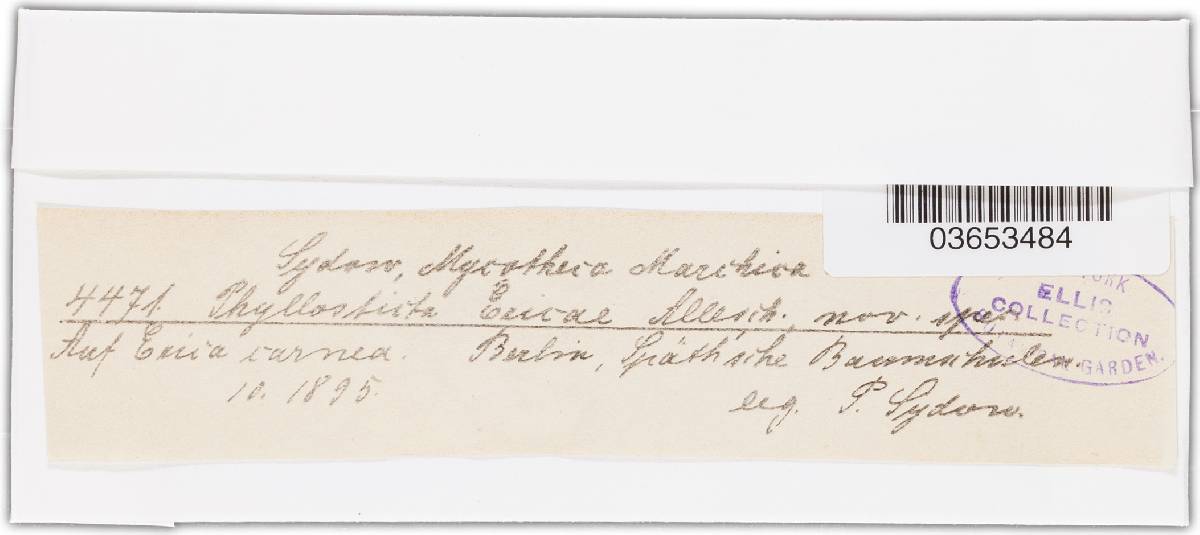 03653484
Sydow, Mycotheca Marchica
4471. Phyllosticta Ericae Allesch., nov. spec.
Auf Erica carnea. Berlin, Späth'sche Baumschulen.
10. 1895.
leg. P. Sydow.
YORK
ELLIS
COLLECTION
GARDEN.